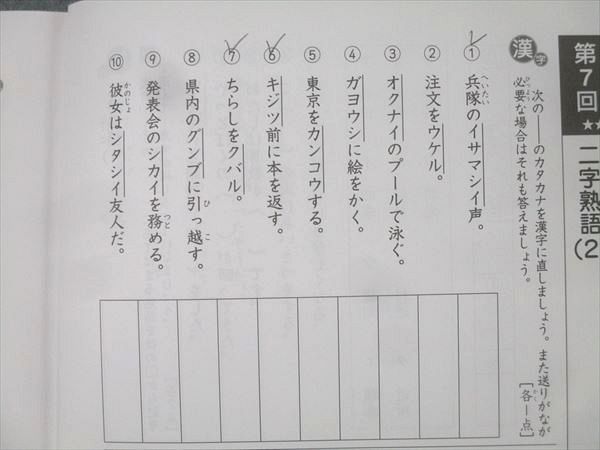 第7回 ★★
二字熟語(2
漢字
次の――のカタカナを漢字に直しましょう。また送りがなが
必要な場合はそれも答えましょう。
[各1点]
① 兵隊のイサマシイ声。
② 注文をウケル。
③ オクナイのプールで泳ぐ。
④ ガヨウシに絵をかく。
⑤ 東京をカンコウする。
⑥ キジツ前に本を返す。
⑦ ちらしをクバル。
⑧ 県内のグンブに引っ越す。
⑨ 発表会のシカイを務める。
⑩ 彼女はシタシイ友人だ。